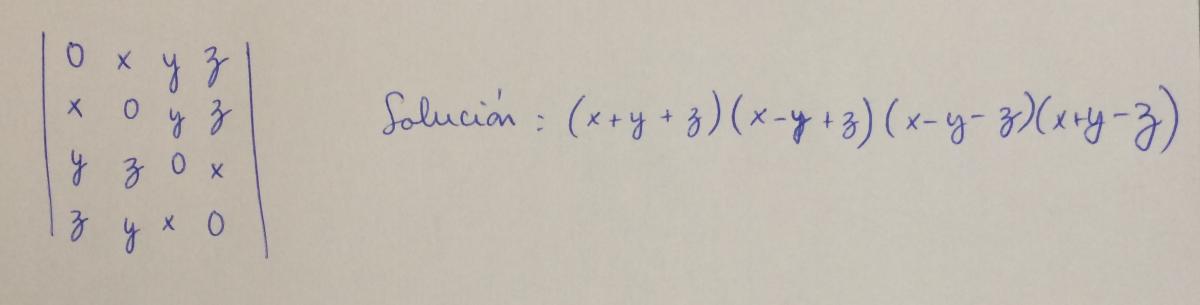 0 x y z
x 0 y z
y z 0 x
z y x 0
Solución: (x+y+z)(x-y+z)(x-y-z)(x+y-z)